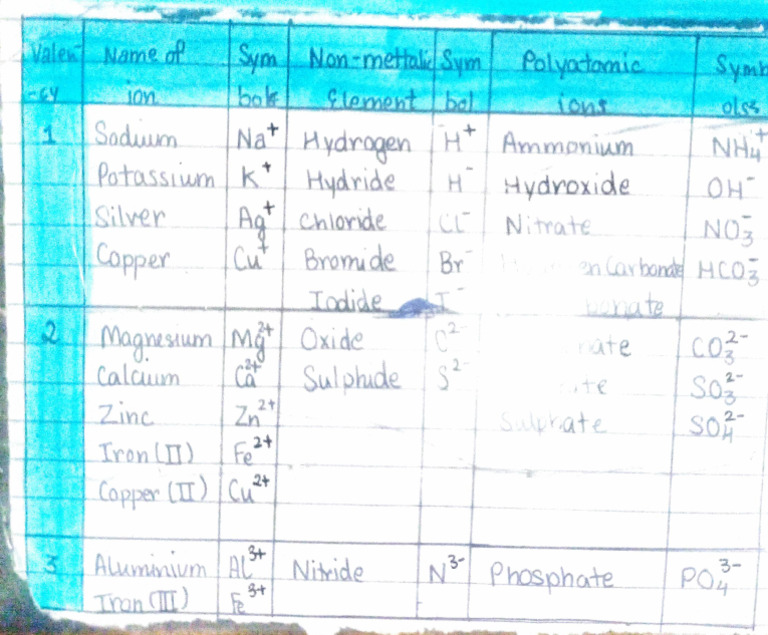 Valen Name of Sym Non-mettalic Sym Polyatomic Symb
-cy ion bols Element bol ions ols
1 Sodium Na⁺ Hydrogen H⁺ Ammonium NH₄⁺
Potassium K⁺ Hydride H⁻ Hydroxide OH⁻
Silver Ag⁺ Chloride Cl⁻ Nitrate NO₃⁻
Copper Cu⁺ Bromide Br⁻ HCO₃⁻
Iodide I⁻
2 Magnesium Mg²⁺ Oxide O²⁻ CO₃²⁻
Calcium Ca²⁺ Sulphide S²⁻ SO₃²⁻
Zinc Zn²⁺ Sulphate SO₄²⁻
Iron (II) Fe²⁺
Copper (II) Cu²⁺
3 Aluminium Al³⁺ Nitride N³⁻ Phosphate PO₄³⁻
Iron (III) Fe³⁺